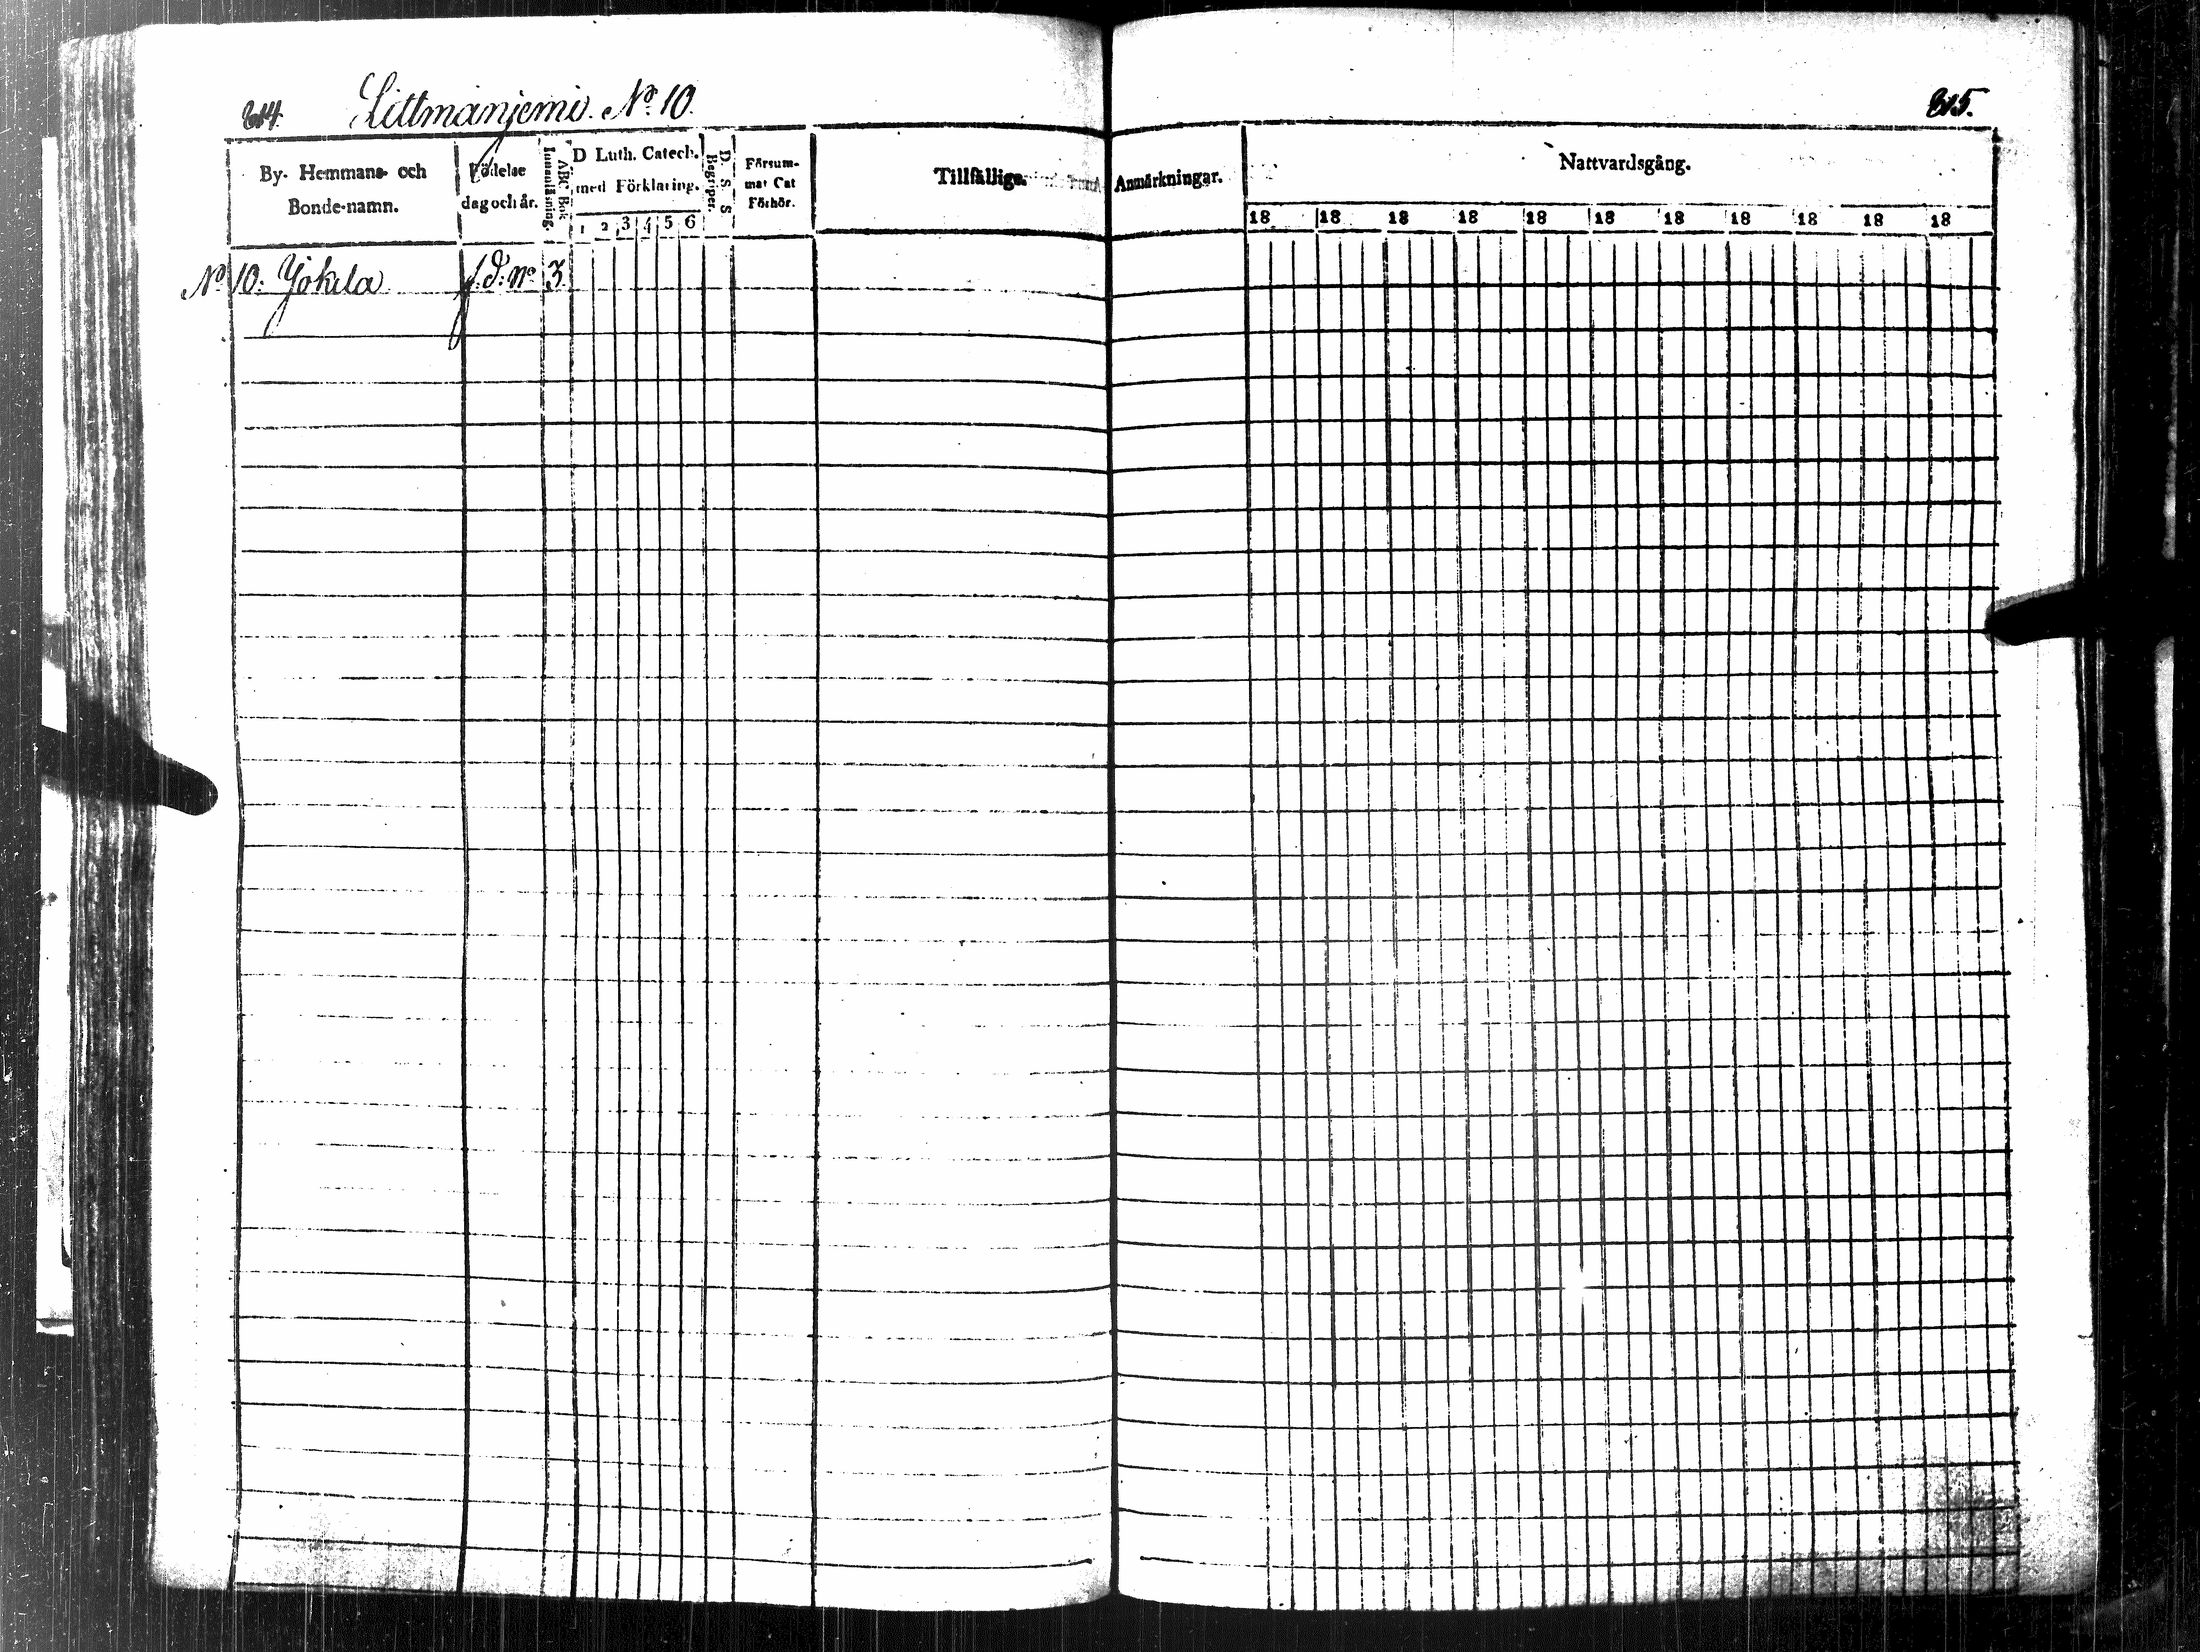 814. Littmanjemi. No 10.
815.
By- Hemmans- och Bonde-namn.
Födelse dag och år.
ABC Bok Innanläsning.
D Luth. Catech. med Förklaring.
1 2 3 4 5 6
D. S. S. Begriper.
Försum- mat Cat Förhör.
Tillfällige Anmärkningar.
Nattvardsgång.
18 18 18 18 18 18 18 18 18 18 18
No 10: Jokela f. d: No 3